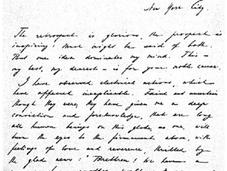 New York City.
The retrospect is glorious, the prospect is
inspiring: Much might be said of both.
But one idea dominates my mind. This –
my best, my dearest – is for your noble cause.
I have observed electrical actions, which
have appeared inexplicable. Faint and uncertain
though they were, they have given me a deep
conviction and foreknowledge, that ere long
all human beings on this globe, as one, will
eyes to the firmament above, with
feelings of love and reverence, thrilled by
the glad news: "Brethren! We have a